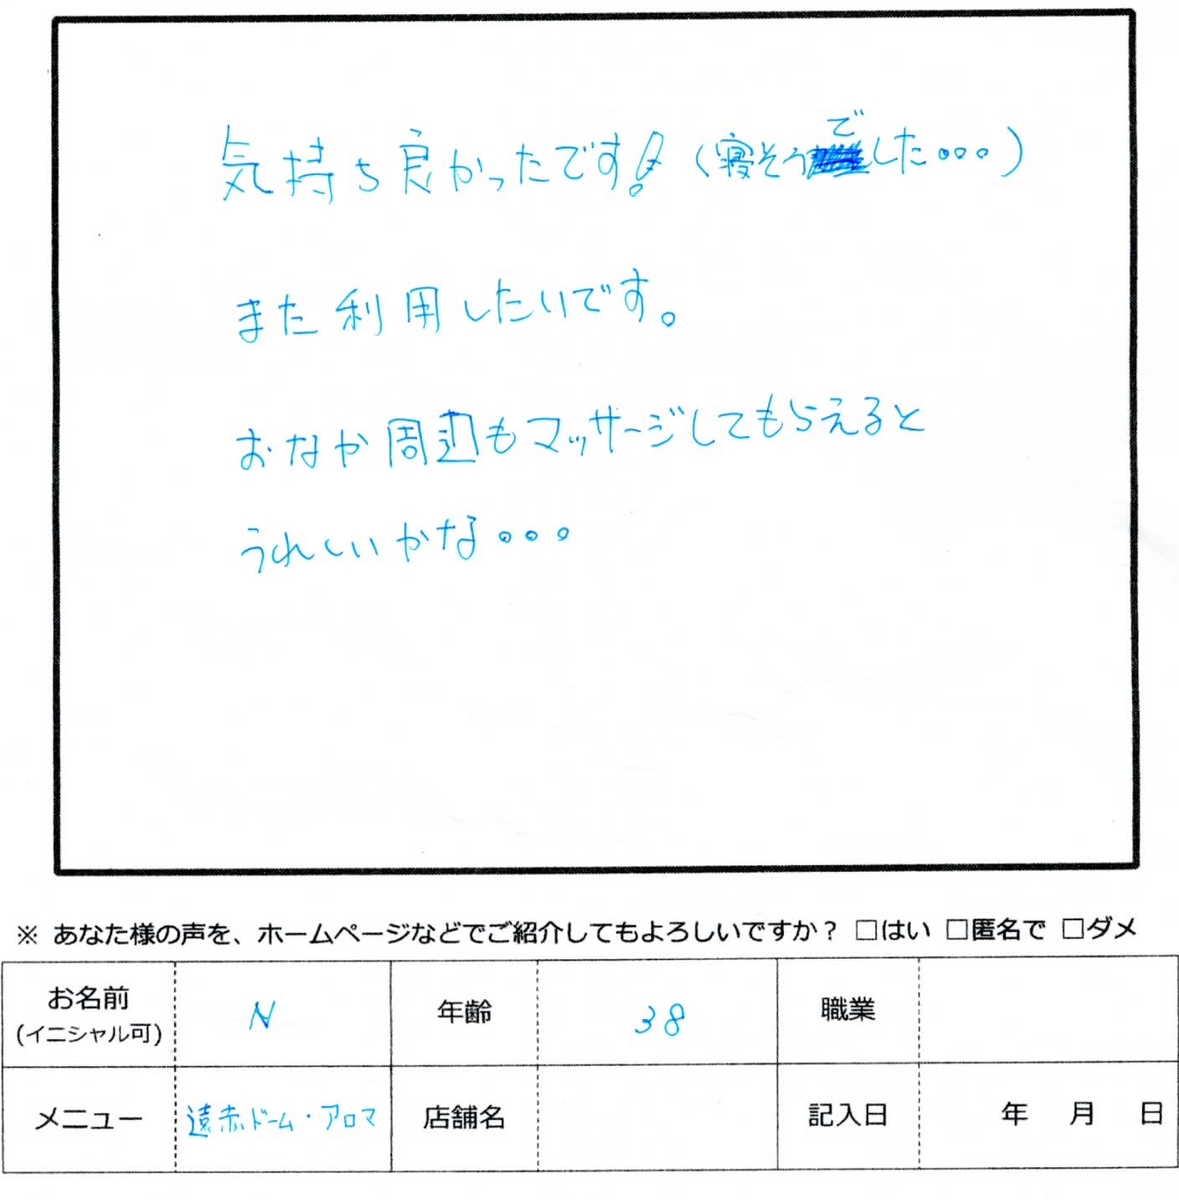 気持ち良かったです!(寝そうでした...)
また利用したいです。
おなか周辺もマッサージしてもらえると
うれしいかな...
※ あなた様の声を、ホームページなどでご紹介してもよろしいですか? □はい □匿名で □ダメ
お名前 (イニシャル可) N 年齢 38 職業
メニュー 遠赤ドーム・アロマ 店舗名 記入日 年 月 日